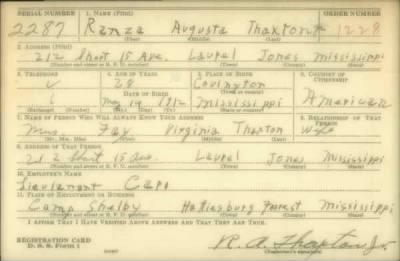 SERIAL NUMBER 1. NAME (Print) ORDER NUMBER
2287 Ranza Augusta Thaxton Jr 1228
(First) (Middle) (Last)
2. ADDRESS (Print)
212 Short 15 Ave. Laurel Jones Mississippi
(Number and street or R. F. D. number) (Town) (County) (State)
3. TELEPHONE 4. AGE IN YEARS 5. PLACE OF BIRTH 6. COUNTRY OF CITIZENSHIP
28 Covington
DATE OF BIRTH (Town or county)
May 14 1912 Mississippi American
(Exchange) (Number) (Mo.) (Day) (Yr.) (State or country)
7. NAME OF PERSON WHO WILL ALWAYS KNOW YOUR ADDRESS 8. RELATIONSHIP OF THAT PERSON
Mrs. Fay Virginia Thaxton Wife
(Mr., Mrs., Miss) (First) (Middle) (Last)
9. ADDRESS OF THAT PERSON
212 Short 15 Ave. Laurel Jones Mississippi
(Number and street or R. F. D. number) (Town) (County) (State)
10. EMPLOYER'S NAME
Lieutenant
11. PLACE OF EMPLOYMENT OR BUSINESS
Camp Shelby Hattiesburg Forrest Mississippi
(Number and street or R. F. D. number) (Town) (County) (State)
I AFFIRM THAT I HAVE VERIFIED ABOVE ANSWERS AND THAT THEY ARE TRUE.
REGISTRATION CARD
D. S. S. Form 1 R. A. Thaxton Jr.
(Registrant's signature)